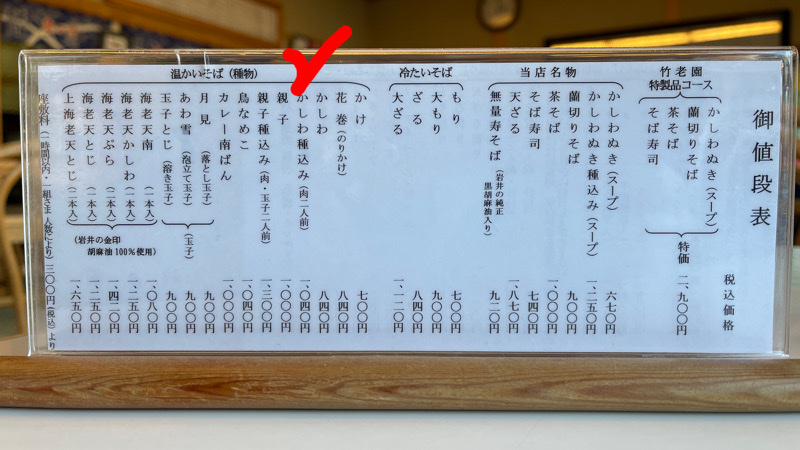 御値段表
税込価格
竹老園
特製品コース
かしわぬき（スープ）
蘭切りそば
茶そば
そば寿司
特価 二、九〇〇円
当店名物
かしわぬき（スープ） 六七〇円
かしわぬき種込み（スープ） 一、二五〇円
蘭切りそば 九〇〇円
茶そば 一、〇〇〇円
そば寿司 七四〇円
天ざる 一、八七〇円
無量寿そば（岩井の純正黒胡麻油入り） 九二〇円
冷たいそば
もり 七〇〇円
大もり 九〇〇円
ざる 八四〇円
大ざる 一、一二〇円
温かいそば（種物）
かけ 七〇〇円
花巻（のりかけ） 八四〇円
かしわ 八四〇円
かしわ種込み（肉二人前） 一、〇四〇円
親子 一、〇〇〇円
親子種込み（肉・玉子二人前） 一、三〇〇円
鳥なめこ 一、〇四〇円
カレー南ばん 一、〇〇〇円
月見（落とし玉子） 九〇〇円
あわ雪（泡立て玉子） 九〇〇円
玉子とじ（溶き玉子） 九〇〇円
（玉子）
海老天南（一本入） 一、〇八〇円
海老天かしわ（一本入） 一、二五〇円
海老天ぷら（二本入） 一、四二〇円
海老天とじ（一本入） 一、二五〇円
上海老天とじ（二本入） 一、六五〇円
（岩井の金印
胡麻油100%使用）
座敷料（一時間以内・一組さま 人数により）三〇〇円（税込）より